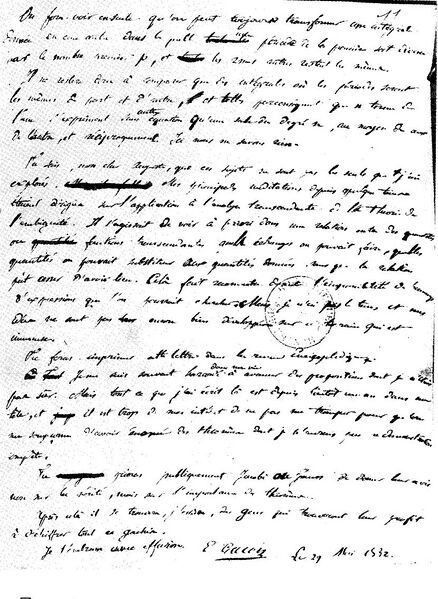 On fera voir ensuite qu'on peut toujours transformer une intégrale
donnée en une autre dans laquelle une période de la première soit divisée
par le nombre premier p, et les 2n-1 autres restent les mêmes.
Il ne restera donc à comparer que des intégrales où les périodes seront
les mêmes de part et d'autre, et telles par conséquent que n termes de
l'une s'expriment sans autre équation qu'une seule du degré n, au moyen de ceux
de l'autre, et réciproquement. Ici nous ne savons rien.
Tu sais, mon cher Auguste, que ces sujets ne sont pas les seuls que j'aie
explorés. Mes principales méditations depuis quelque temps
étaient dirigées sur l'application à l'analyse transcendante de la théorie de
l'ambiguité. Il s'agissait de voir a priori dans une relation entre des quantités
ou fonctions transcendantes quels échanges on pouvait faire, quelles
quantités on pouvait substituer aux quantités données sans que la relation
pût cesser d'avoir lieu. Cela fait reconnaître l'impossibilité de beaucoup
d'expressions que l'on pourrait chercher. Mais je n'ai pas le temps et mes
idées ne sont pas encore bien développées sur ce terrain qui est
immense.
Tu feras imprimer cette lettre dans la revue encyclopédique.
Je me suis souvent hasardé dans ma vie à avancer des propositions dont je n'étais
pas sûr. Mais tout ce que j'ai écrit là est depuis bientôt un an dans ma
tête, et il est trop de mon intérêt de ne pas me tromper pour qu'on
me soupçonne d'avoir énoncé des théorèmes dont je n'aurais pas la démonstration
complète.
Tu prieras publiquement Jacobi ou Gauss de donner leur avis
non sur la vérité, mais sur l'importance des théorèmes.
Après cela il se trouvera, j'espère, des gens qui trouveront leur profit
à déchiffrer tout ce gâchis.
Je t'embrasse avec effusion. E Galois Le 29 Mai 1832.